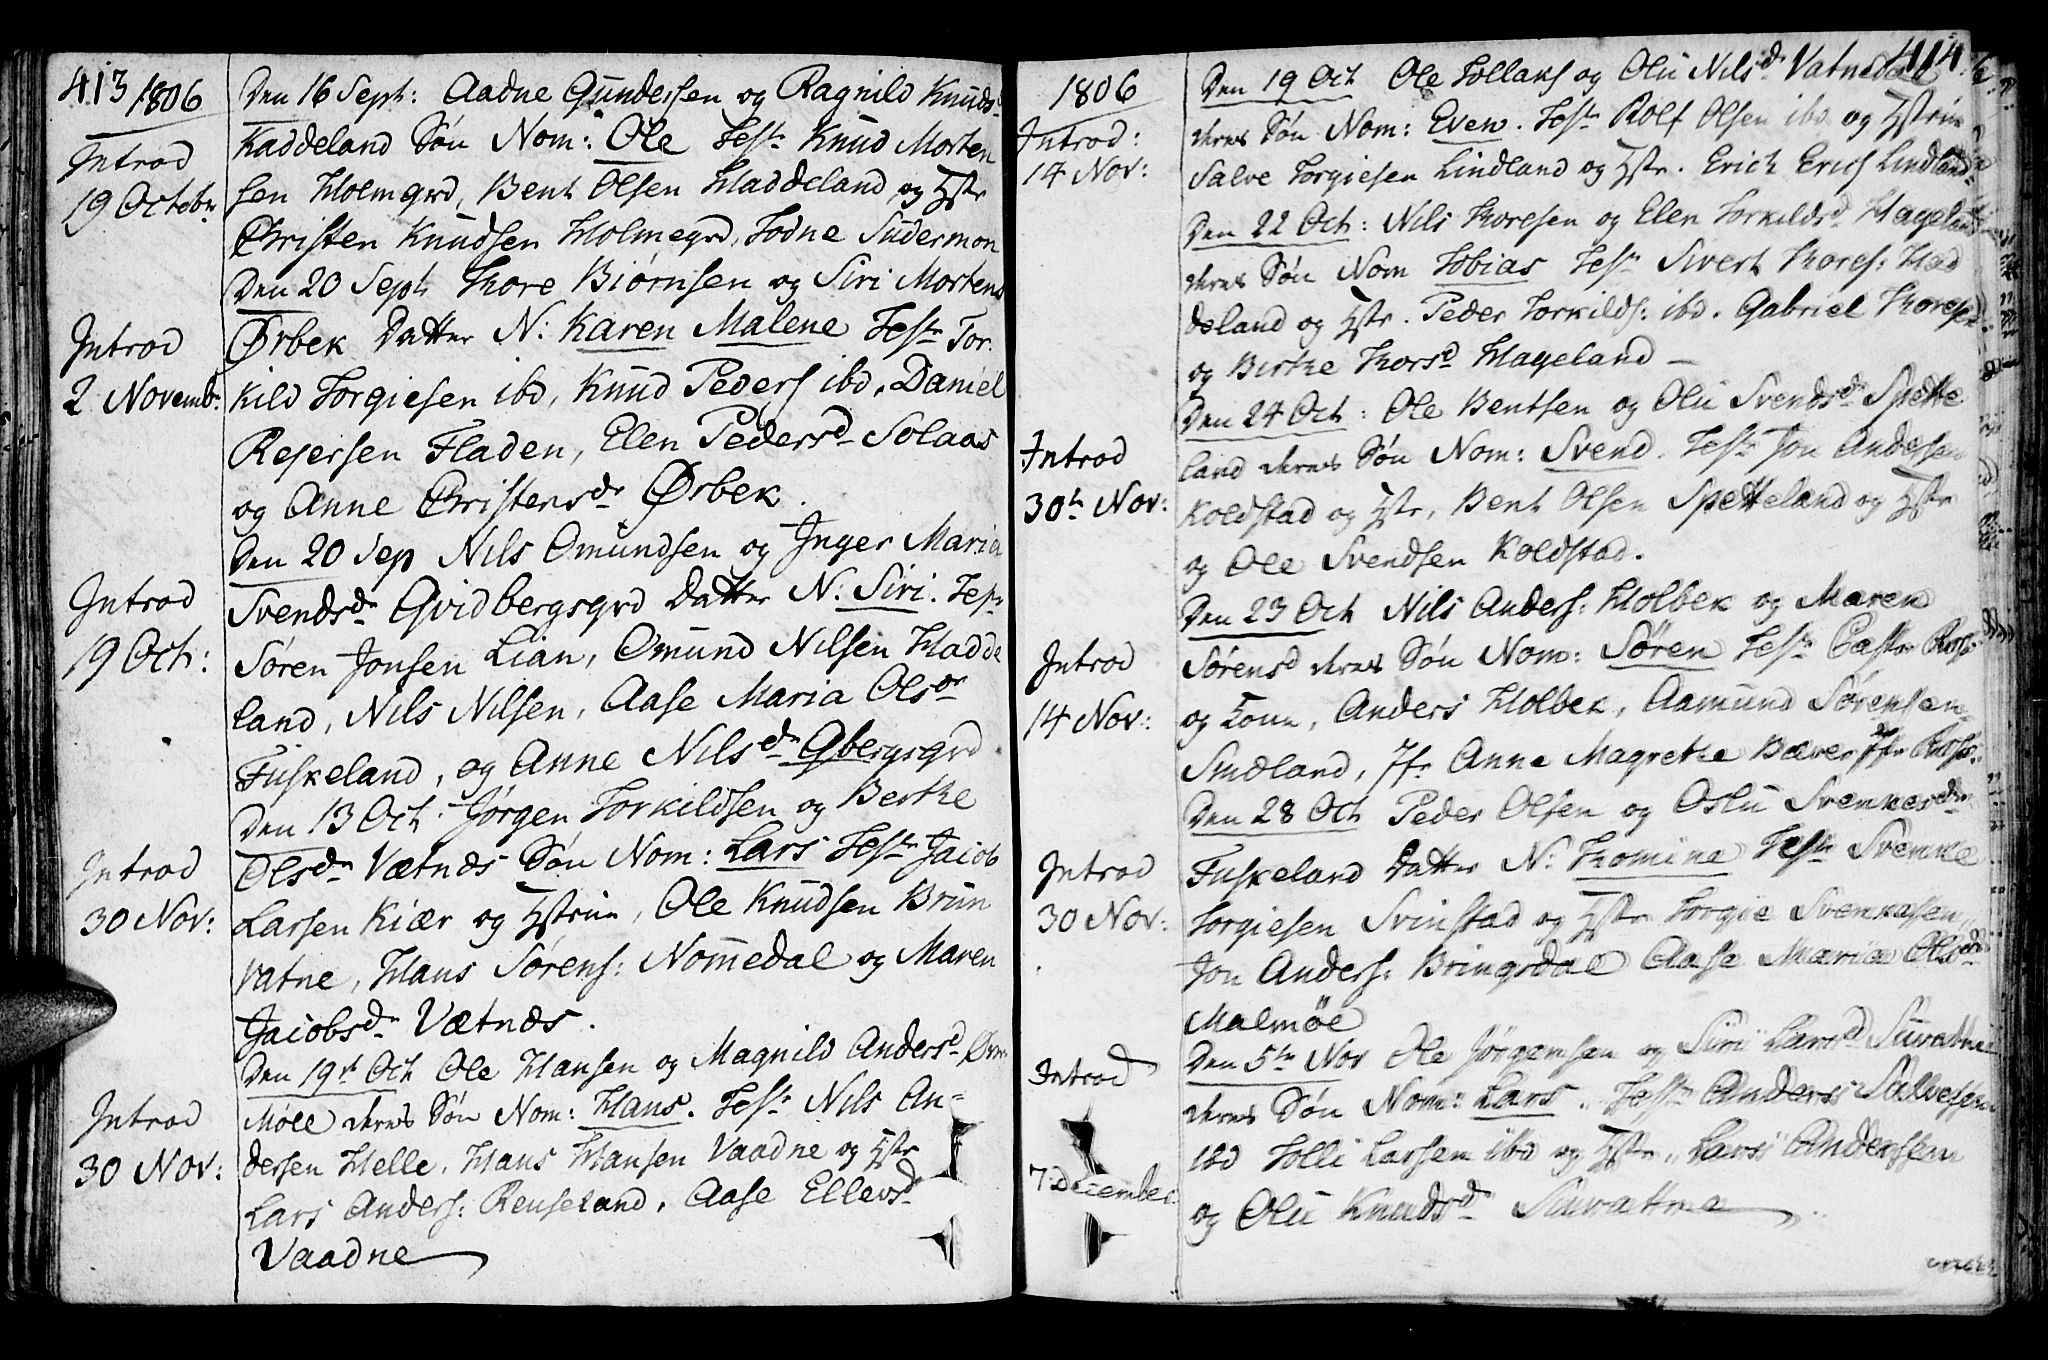 413 1806
Introd
19 Octobr
Den 16 Sept: Aadne Gundersen og Ragnild Knuds
Haddeland Søn Nom: Ole Testr Knud Morten
sen Holmgrd, Bent Olsen Haddeland og Hstr
Christen Knudsen Holmegrd, Jodne Sudermon
Introd
2 Novembr
Den 20 Sept Thore Biørnsen og Siri Mortens
Ørbek Datter N: Karen Malene Testr Tor
kild Torgiesen ibd, Knud Peders ibd, Daniel
Rejersen Fladen, Elen Pedersd Solaas
og Anne Christensdr Ørbek.
Introd
19 Oct:
Den 20 Sep Nils Omundsen og Inger Maria
Svendsdr Qvidbergsgrd Datter N: Siri. Testr
Søren Jonsen Lian, Omund Nilsen Hadde
land, Nils Nilsen, Aase Maria Olsdr
Fuskeland, og Anne Nilsdr Qbergsgrd.
Introd
30 Nov:
Den 13 Oct. Jørgen Torkildsen og Berthe
Olsdr Vætnæs Søn Nom: Lars Testr Jacob
Larsen Kiær og Hstrue, Ole Knudsen Brun
vatne, Hans Sørens: Nomedal og Maren
Jacobsdr Vætnæs.
Introd
30 Nov:
Den 19de Oct Ole Hansen og Magnild Andersd
Møll deres Søn Nom: Hans. Testr Nils An-
dersen Helle, Hans Hansen Vaadne og Hstr
Lars Anders: Reuseland, Aase Ellevsd
Vaadne
414
1806
Introd:
14 Nov:
Den 19 Oct Ole Tollaks og Olu Nilsdr Vatnedal
deres Søn Nom: Even. Testr Rolf Olsen ibd og Hstrue
Salve Torgiesen Lindland og Hstr. Erich Erics Lindland
Den 22 Oct: Nils Thoresen og Elen Torkildsd Hageland
deres Søn Nom Tobias Testr Sivert Thores: Had
deland og Hstr. Peder Torkilds: ibd. Gabriel Thores
og Berthe Thorsd Hageland
Introd
30te Nov:
Den 24 Oct: Ole Bentsen og Olu Svendsdr Spette
land deres Søn Nom: Svend. Testr Jon Andersen
Koldstad og Hstr, Bent Olsen Spetteland og Hstr
og Ole Svendsen Koldstad.
Introd
14 Nov:
Den 23 Oct Nils Anders: Holbek og Maren
Sørensd deres Søn Nom: Søren Testr Pastr
og Kone, Anders Holbek, Aamund Sørensen
Smedland, Jfr Anne Magrethe Bærer Jfr
Introd
30 Nov:
Den 28 Oct Peder Olsen og Oslu Svenkesdr
Fuskeland Datter N: Thomine Testr Svenke
Torgiesen Svinstad og Hstr Torgie Svenkesen,
Jon Anders: Bringsdal Aase Maria Olsdr
Malmøe
Introd
7 December
Den 5te Nov Ole Jørgensen og Siri Larsd Suvatne
deres Søn Nom: Lars. Testr Anders Salvesen
ibd Tolli Larsen ibd og Hstr, Lars Andersen
og Olu Knudsdr Suvatne